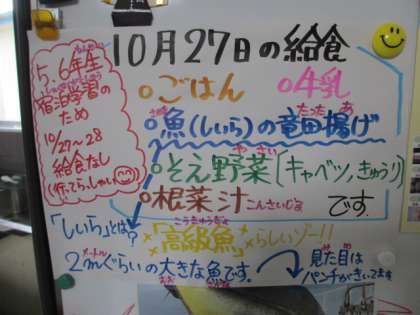 10月27日の給食
5、6年生
しゅくはくがくしゅう
宿泊学習の
ため
10/27〜28
給食なし
(行ってらっしゃい)
・ごはん ・牛乳
・魚(しいら)の竜田揚げ
・そえ野菜[キャベツ、きゅうり]
・根菜汁 こんさいじる
です。
「しいら」とは?
こうきゅうぎょ
"高級魚"らしいゾー!!
2mぐらいの大きな魚です。
メートル
見た目は
パンチがきいてます